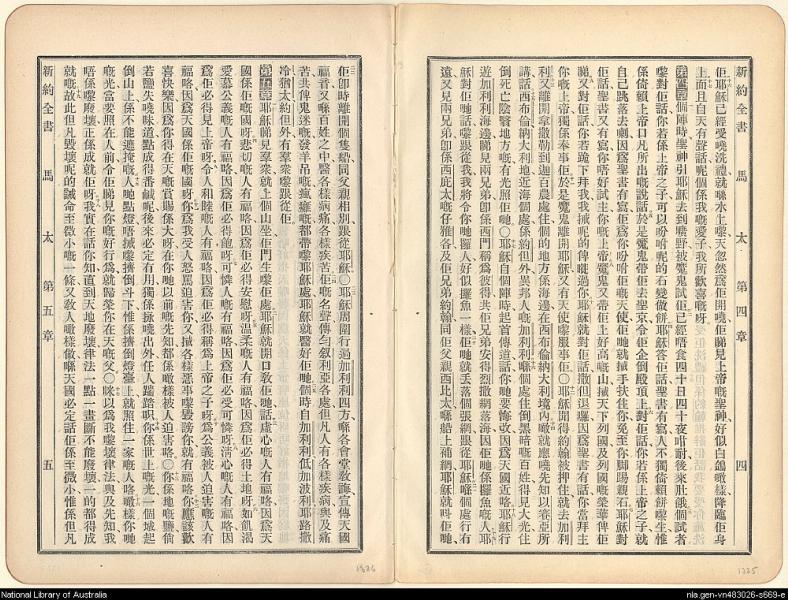 新約全書 馬太 第四章 四
佢耶穌已經受曉洗禮就喺水上嚟天忽然為佢開曉佢睇見上帝嘅聖神好似白鴿噉樣降臨佢身
上而且自天有聲話呢個係我嘅愛子我所歡喜嘅呀
第四章個陣時聖神引耶穌去到曠野被魔鬼試佢已經唔食四十日四十夜咁耐後來肚餓個試者
嚟對佢話你若係上帝之子可以吩咐呢的石變做餅耶穌答佢話聖書有寫人不獨倚賴餅嚟生惟
係倚賴上帝口凡所出嘅說話於是魔鬼帶佢去聖京令佢企倒殿頂上對佢話你若係上帝之子就
自己跳落去喇因為聖書有寫佢為你吩咐佢嘅天使佢哋就揸手扶住你免至你脚踢親石耶穌對
佢話聖書又有寫你唔好試主你嘅上帝魔鬼又帶佢上好高嘅山將天下列國及列國嘅榮華俾佢
睇又對佢話你若跪下拜我我將呢的俾嗮過你耶穌就對佢話撒但退囉因為聖書有話你當拜主
你嘅上帝獨係奉事佢於是魔鬼離開耶穌又有天使嚟服事佢〇耶穌聞得約翰被押住就去加利
利又離開拿撒勒到迦百農處住個的地方係海邊在西布倫納大利境內噉就應曉先知以賽亞所
講話西布倫納大利地近海個處係約但外異邦人嘅加利利喺個處住倒黑暗嘅百姓得見大光住
倒死亡陰翳地方嘅有光照佢哋〇耶穌自個陣時起首傳道話你哋要悔改因為天國近咯耶穌行
遊加利利海邊睇見兩兄弟卽係西門稱為彼得共佢兄弟安得烈撒網落海因佢哋係攞魚嘅人耶
穌對佢哋話嚟跟從我我將令你哋攞人好似攞魚一樣佢哋就丢落個張網跟從耶穌喺個處行有
遠又見兩兄弟卽係西庇太嘅仔雅各及佢兄弟約翰同佢父親西比太喺船上補網耶穌就呌佢哋
佢卽時離開個隻船同父親相別跟從耶穌〇耶穌周圍行遍加利利四方喺各會堂敎誨宣傳天國
福音又喺百姓之中醫各樣病痛各樣疾苦佢嘅名聲傳勻叙利亞各處但凡人有各樣疾病與及痛
苦共俾鬼迷嘅發羊吊嘅瘋癱嘅都帶嚟耶穌處耶穌就醫好佢哋個時自加利利低加波利耶路撒
冷猶太約但外有羣衆嚟跟從佢
第五章耶穌睇見羣衆就上個山坐佢門生嚟佢處耶穌就開口敎佢哋話虛心嘅人有福咯因為天
國係佢嘅國呀悲切嘅人有福咯因為佢必得安慰呀温柔嘅人有福咯因為佢必得土地呀如飢渴
愛慕公義嘅人有福咯因為佢必得飽呀可憐人嘅有福咯因為佢必受可憐呀淸心嘅人有福咯因
為佢必得見上帝呀令人和睦嘅人有福咯因為佢必得稱為上帝之子呀為公義被人迫害嘅人有
福咯因為天國係佢嘅國呀你為我受人怒罵迫害你又將各樣惡事嚟毀謗你就有福咯你應該歡
喜快樂因為你得在天嘅賞賜係大呀在你哋以前嘅先知都係噉樣被人迫害咯〇你係地嘅鹽倘
若鹽失曉味道點成得番鹹呢後來必定有用獨係掞曉出外任人躧踏啫你係世上嘅光一個城起
倒山上係不能遮掩嘅人哋點燈唔搣嚟擠倒斗下惟係擠倒燈臺上就照住一家嘅人咯噉樣你哋
嘅光當要照在人前令佢睇見你嘅好行為就歸榮你在天嘅父〇咪以為我嚟壞律法與及先知我
唔係嚟廢壞正係成就佢呀我實在話你知直到天地廢壞律法一點一畫斷不能廢壞一的都得成
就嘅故此但凡毀壞呢的誡命至微小嘅一條又敎人噉樣做喺天國必定話佢係至微小惟係但凡
新約全書 馬太 第五章 五
1326
1325
National Library of Australia
nla.gen-vn483026-s669-e